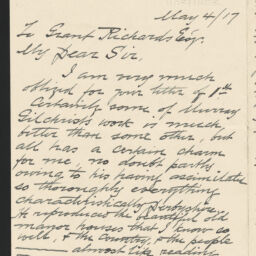 May 4/17
To Grant Richards Esq.
My Dear Sir,
I am very much
obliged for your letter of 1st
Certainly some of Murray
Gilchrist's work is much
better than some other, but
all has a certain charm
for me, no doubt partly
owing to his having assimilated
so thoroughly everything
characteristically Derbyshire.
He reproduced the beautiful old
manor houses that I know so
well, & the country, & the people
almost like reading